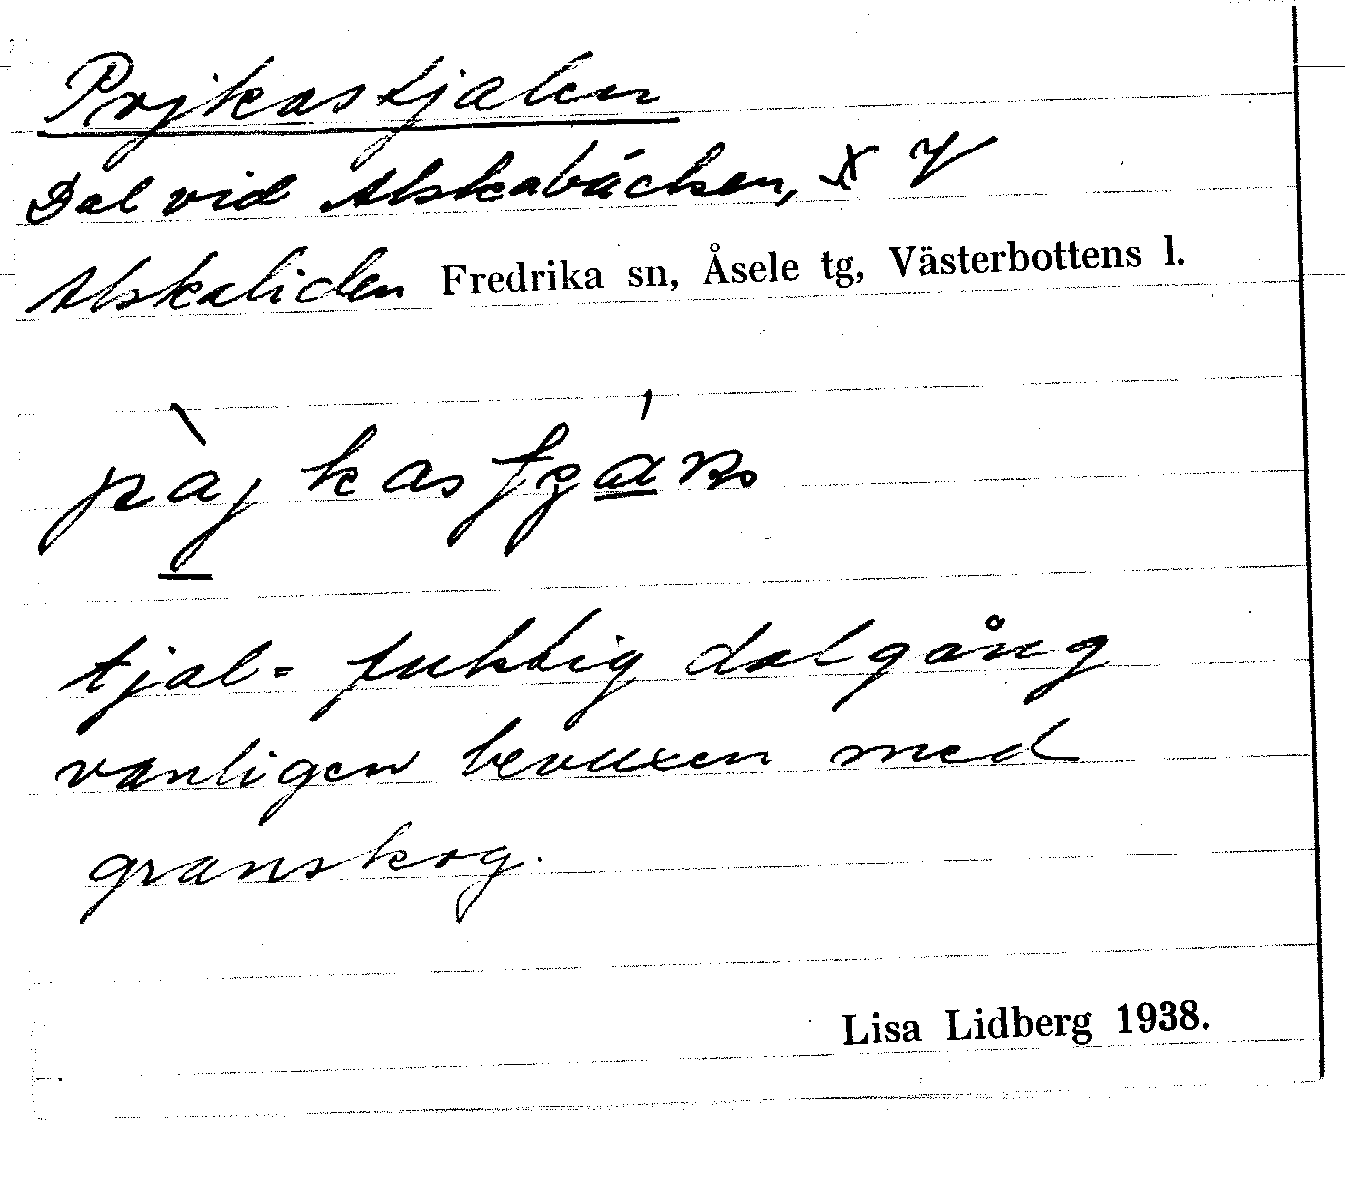 Pojkastjalen
Dal vid Alskabäcken, X V
Alskaliden Fredrika sn, Åsele tg, Västerbottens l.
tjal = fuktig dalgång
vanligen bevuxen med
granskog.
Lisa Lidberg 1938.